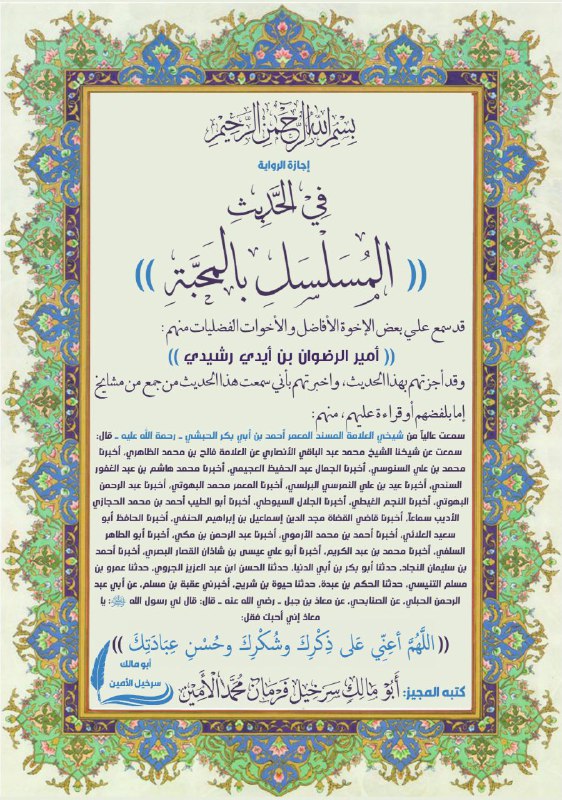 بِسْمِ اللهِ الرَّحْمٰنِ الرَّحِيْمِ
إجازة الرواية
فِي الْحَدِيْثِ
(( المُسَلْسَلِ بِالْمَحَبَّةِ ))
قد سمع علي بعض الإخوة الأفاضل والأخوات الفضليات منهم:
(( أمير الرضوان بن أيدي رشيدي ))
وقد أجزتهم بهذا الحديث، واخبرتهم بأني سمعت هذا الحديث من جمع من مشايخ
إما بلفضهم أو قراءة عليهم، منهم:
سمعت عالياً من شيخي العلامة المسند المعمر أحمد بن أبي بكر الحبشي ـ رحمة الله عليه ـ قال:
سمعت عن شيخنا الشيخ محمد عبد الباقي الأنصاري عن العلامة فالح بن محمد الظاهري، أخبرنا
محمد بن علي السنوسي، أخبرنا الجمال عبد الحفيظ العجيمي، أخبرنا محمد هاشم بن عبد الغفور
السندي، أخبرنا عيد بن علي النمرسي البرلسي، أخبرنا المعمر محمد البهوتي، أخبرنا عبد الرحمن
البهوتي، أخبرنا النجم الغيطي، أخبرنا الجلال السيوطي، أخبرنا أبو الطيب أحمد بن محمد الحجازي
الأديب سماعاً، أخبرنا قاضي القضاة مجد الدين إسماعيل بن إبراهيم الحنفي، أخبرنا الحافظ أبو
سعيد العلائي، أخبرنا أحمد بن محمد الأرموي، أخبرنا عبد الرحمن بن مكي، أخبرنا أبو الطاهر
السلفي، أخبرنا محمد بن عبد الكريم، أخبرنا أبو علي عيسى بن شاذان القصار البصري، أخبرنا أحمد
بن سليمان النجاد، حدثنا أبو بكر بن أبي الدنيا، حدثنا الحسن ابن عبد العزيز الجروي، حدثنا عمرو بن
مسلم التنيسي، حدثنا الحكم بن عبدة، حدثنا حيوة بن شريح، أخبرني عقبة بن مسلم، عن أبي عبد
الرحمن الحبلي، عن الصنابحي، عن معاذ بن جبل ـ رضي الله عنه ـ قال: قال لي رسول الله ﷺ: يا
معاذ إني أحبك فقل:
(( اللَّهُمَّ أَعِنِّي عَلَى ذِكْرِكَ وشُكْرِكَ وحُسْنِ عِبَادَتِكَ ))
كتبه المجيز: أَبُو مَالِكٍ سَرْخِيل فَرْمَان مُحَمَّد الأَمِيْن
أبو مالك
سرخيل الأمين